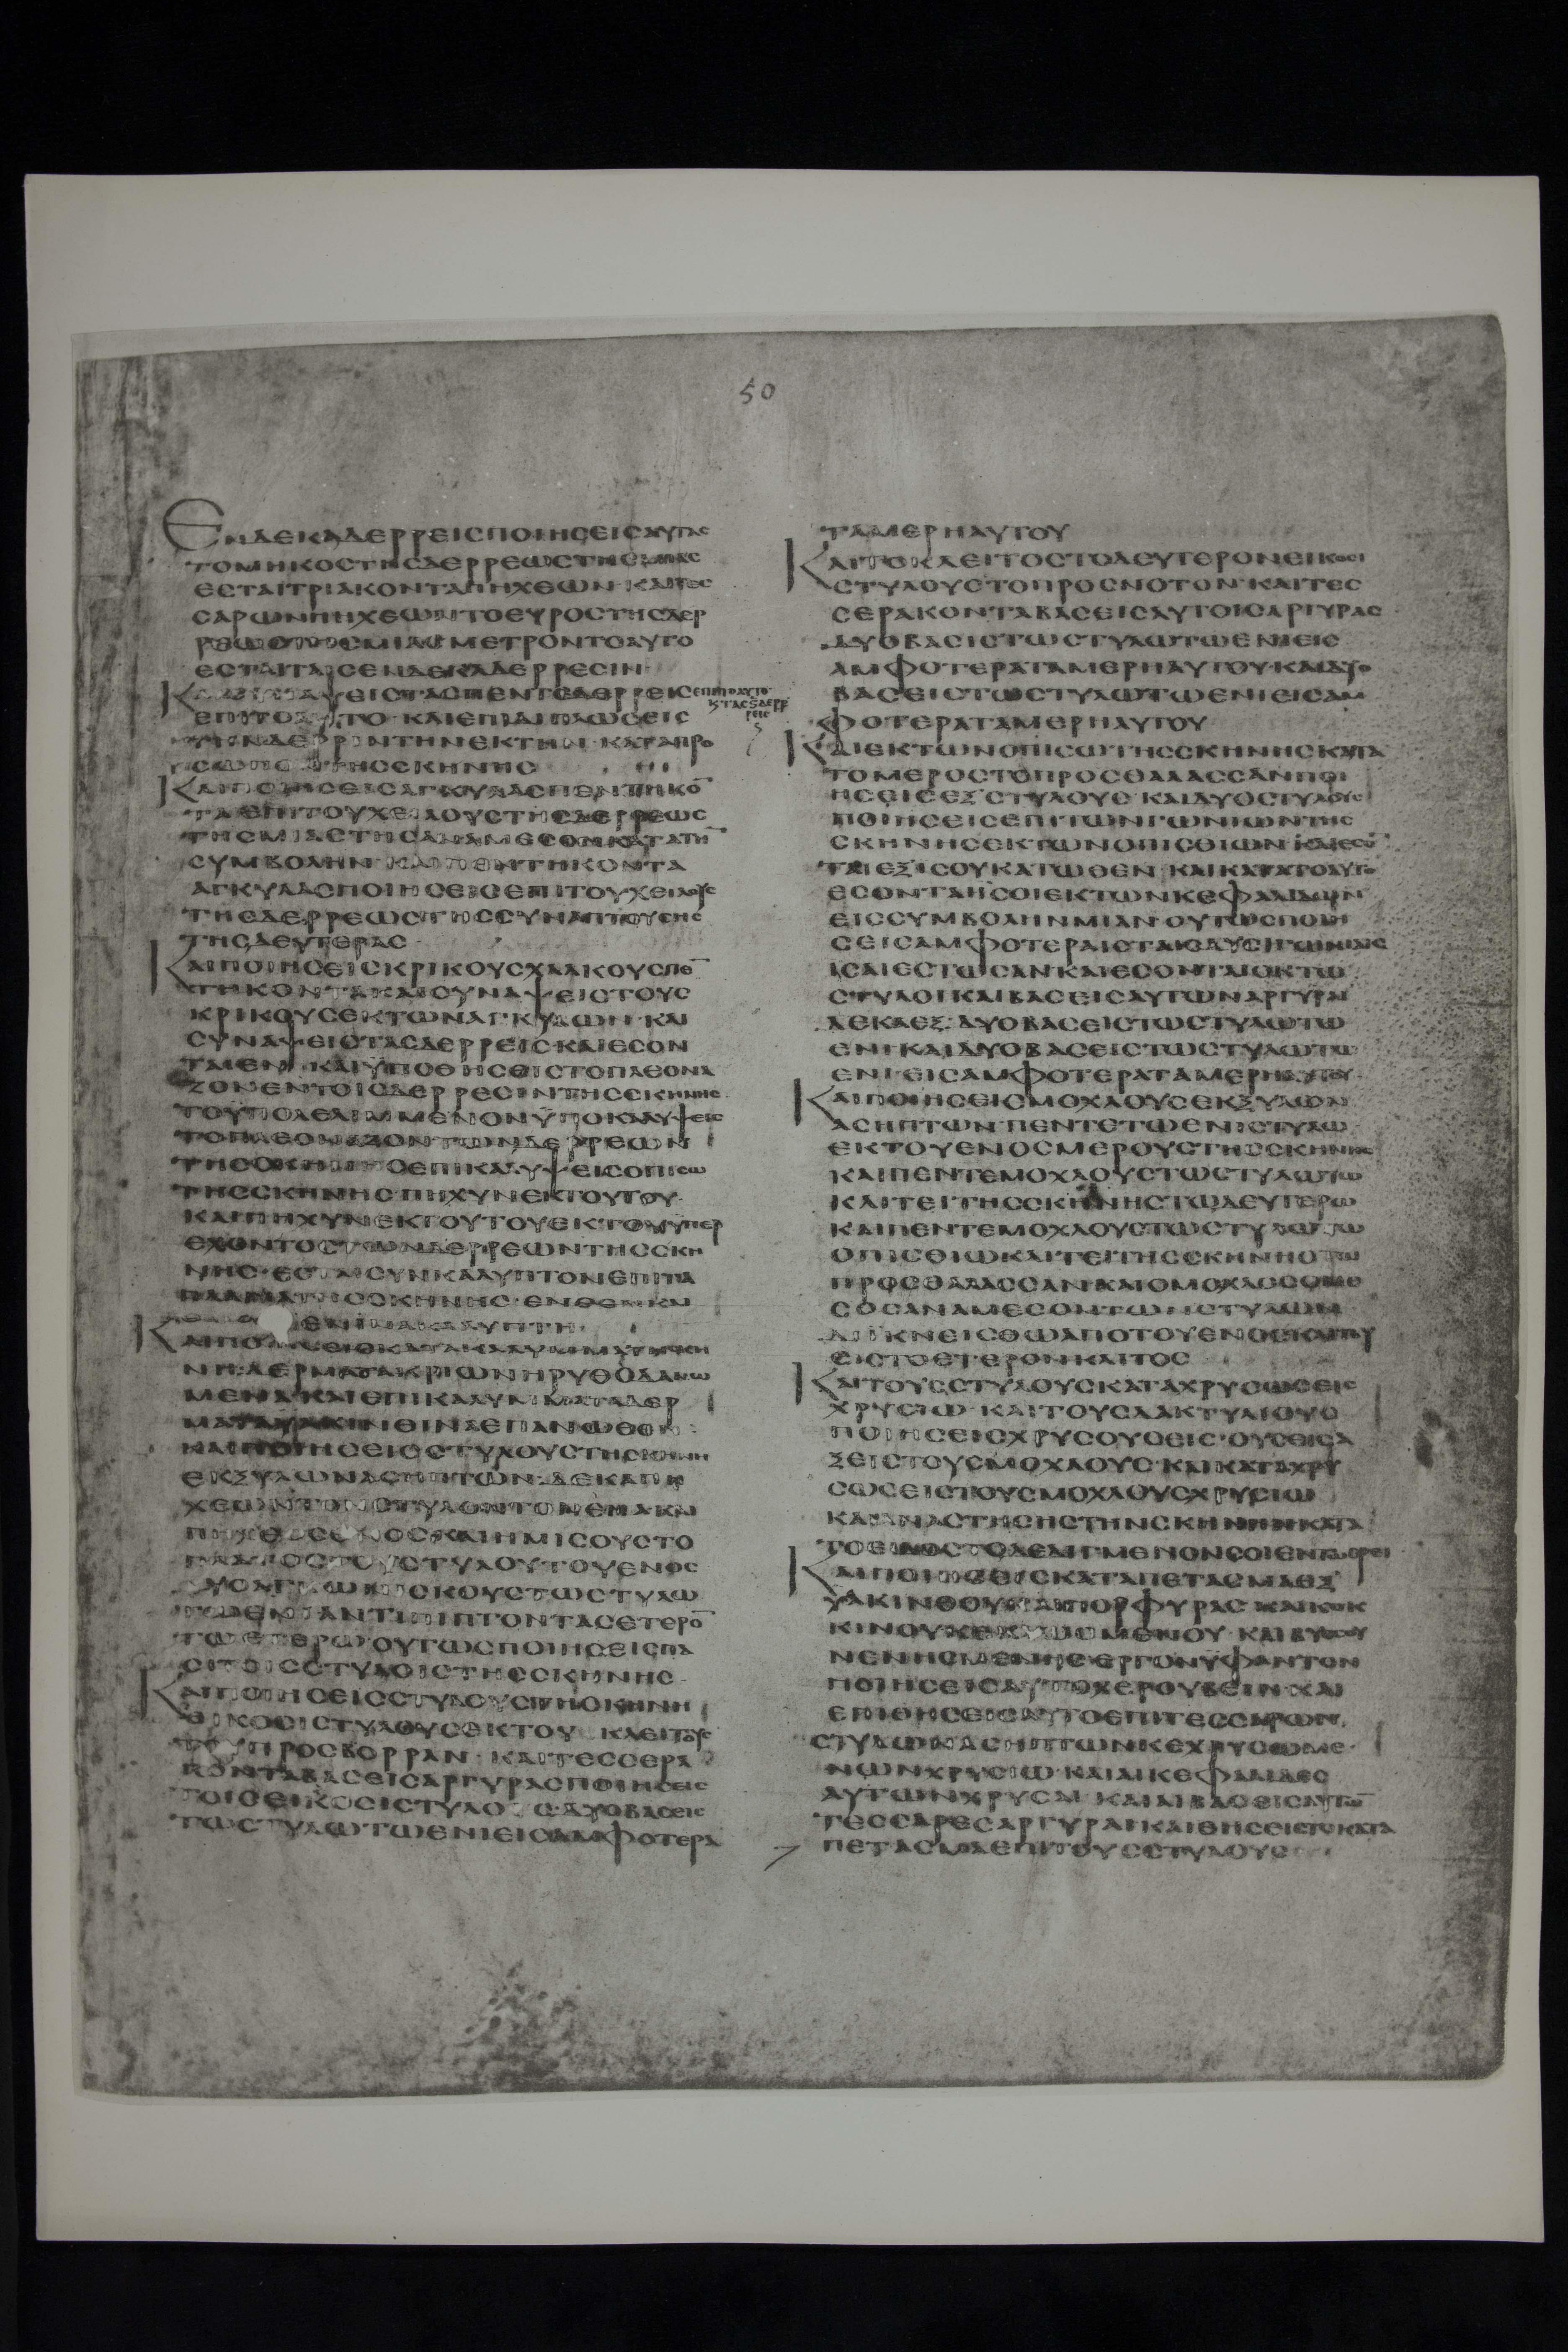 50
ΕΝΔΕΚΑΔΕΡΡΕΙΣΠΟΙΗΣΕΙΣΑΥΤΑΣ
ΤΟΜΗΚΟΣΤΗΣΔΕΡΡΕΩΣΤΗΣΜΙΑΣ
ΕΣΤΑΙΤΡΙΑΚΟΝΤΑΠΗΧΕΩΝ ΚΑΙΤΕΣ
ΣΑΡΩΝΠΗΧΕΩΝΤΟΕΥΡΟΣΤΗΣΔΕΡ
ΡΕΩΣΤΗΣΜΙΑΣ ΜΕΤΡΟΝΤΟΑΥΤΟ
ΕΣΤΑΙΤΑΙΣΕΝΔΕΚΑΔΕΡΡΕΣΙΝ
ΚΑΙΣΥΝΑΨΕΙΣΤΑΣΠΕΝΤΕΔΕΡΡΕΙΣ
ΕΠΙΤΟΑΥΤΟ
ϏΤΑΣϚΔΕΡΡ
ΡΕΙΣ
ΕΠΙΤΟΑΥΤΟ ΚΑΙΕΠΙΔΙΠΛΩΣΕΙΣ
ΤΗΝΔΕΡΡΙΝΤΗΝΕΚΤΗΝ ΚΑΤΑΠΡΟ
ΣΩΠΟΝΤΗΣΣΚΗΝΗΣ
ΚΑΙΠΟΙΗΣΕΙΣΑΓΚΥΛΑΣΠΕΝΤΗΚΟ̅
ΤΑΕΠΙΤΟΥΧΕΙΛΟΥΣΤΗΣΔΕΡΡΕΩΣ
ΤΗΣΜΙΑΣΤΗΣΑΝΑΜΕΣΟΝΚΑΤΑΤΗ̅
ΣΥΜΒΟΛΗΝ ΚΑΙΠΕΝΤΗΚΟΝΤΑ
ΑΓΚΥΛΑΣΠΟΙΗΣΕΙΣΕΠΙΤΟΥΧΕΙΛΟΥΣ
ΤΗΣΔΕΡΡΕΩΣΤΗΣΣΥΝΑΠΤΟΥΣΗΣ
ΤΗΣΔΕΥΤΕΡΑΣ
ΚΑΙΠΟΙΗΣΕΙΣΚΡΙΚΟΥΣΧΑΛΚΟΥΣΠΕ̅
ΤΗΚΟΝΤΑΚΑΙΣΥΝΑΨΕΙΣΤΟΥΣ
ΚΡΙΚΟΥΣΕΚΤΩΝΑΓΚΥΛΩΝ ΚΑΙ
ΣΥΝΑΨΕΙΣΤΑΣΔΕΡΡΕΙΣΚΑΙΕΣΟΝ
ΤΑΙΕΝ ΚΑΙΥΠΟΘΗΣΕΙΣΤΟΠΛΕΟΝΑ
ΖΟΝΕΝΤΟΙΣΔΕΡΡΕΣΙΝΤΗΣΣΚΗΝΗΣ
ΤΟΥΠΟΛΕΛΙΜΜΕΝΟΝΥΠΟΚΑΛΥΨΕΙΣ
ΤΟΠΛΕΟΝΑΖΟΝΤΩΝΔΕΡΡΕΩΝ
ΤΗΣΣΚΗΝΗΣΕΠΙΚΑΛΥΨΕΙΣΟΠΙΣΩ
ΤΗΣΣΚΗΝΗΣΠΗΧΥΝΕΚΤΟΥΤΟΥ
ΚΑΙΠΗΧΥΝΕΚΤΟΥΤΟΥΕΚΤΟΥΥΠΕΡ
ΕΧΟΝΤΟΣΤΩΝΔΕΡΡΕΩΝΤΗΣΣΚΗ
ΝΗΣ ΕΣΤΑΙΣΥΝΚΑΛΥΠΤΟΝΕΠΙΤΑ
ΠΛΑΓΙΑΤΗΣΣΚΗΝΗΣ ΕΝΘΕΝΚΑΙ
ΙΝΑΚΑΛΥΠΤΗ
ΚΑΙΠΟΙΗΣΕΙΣΚΑΤΑΚΑΛΥΜΜΑΤΗΣΚΗ
ΝΗΔΕΡΜΑΤΑΚΡΙΩΝΗΡΥΘΟΔΑΝΩ
ΜΕΝΑΚΑΙΕΠΙΚΑΛΥΜΜΑΤΑΔΕΡ
ΜΑΤΑΥΑΚΙΝΘΙΝΑΕΠΑΝΩΘΕΝ
ΚΑΙΠΟΙΗΣΕΙΣΣΤΥΛΟΥΣΤΗΣΚΗΝΗ
ΕΚΞΥΛΩΝΑΣΗΠΤΩΝ ΔΕΚΑΠΗ
ΧΕΩΝΤΟΝΣΤΥΛΟΝΤΟΝΕΝΑΚΑΙ
ΠΗΧΕΟΣΕΝΟΣΚΑΙΗΜΙΣΟΥΣΤΟ
ΠΛΑΤΟΣΤΟΥΣΤΥΛΟΥΤΟΥΕΝΟΣ
ΔΥΟΑΓΚΩΝΙΣΚΟΥΣΤΩΣΤΥΛΩ
ΤΩΕΝΙΑΝΤΙΠΙΠΤΟΝΤΑΣΕΤΕΡΟ̅
ΤΩΕΤΕΡΩ ΟΥΤΩΣΠΟΙΗΣΕΙΣΠΑ
ΣΙΤΟΙΣΣΤΥΛΟΙΣΤΗΣΣΚΗΝΗΣ
ΚΑΙΠΟΙΗΣΕΙΣΣΤΥΛΟΥΣΤΗΣΚΗΝΗ
ΕΙΚΟΣΙΣΤΥΛΟΥΣΕΚΤΟΥ ΚΛΕΙΤΟΥΣ
ΤΟΥΠΡΟΣΒΟΡΡΑΝ ΚΑΙΤΕΣΣΕΡΑ
ΚΟΝΤΑΒΑΣΕΙΣΑΡΓΥΡΑΣΠΟΙΗΣΕΙΣ
ΤΟΙΣΕΙΚΟΣΙΣΤΥΛΟΙΣ ΔΥΟΒΑΣΕΙΣ
ΤΩΣΤΥΛΩΤΩΕΝΙΕΙΣΑΜΦΟΤΕΡΑ
ΤΑΜΕΡΗΑΥΤΟΥ
ΚΑΙΤΟΚΛΕΙΤΟΣΤΟΔΕΥΤΕΡΟΝΕΙΚΟΣΙ
ΣΤΥΛΟΥΣΤΟΠΡΟΣΝΟΤΟΝ ΚΑΙΤΕΣ
ΣΕΡΑΚΟΝΤΑΒΑΣΕΙΣΑΥΤΟΙΣΑΡΓΥΡΑΣ
ΔΥΟΒΑΣΙΣΤΩΣΤΥΛΩΤΩΕΝΙΕΙΣ
ΑΜΦΟΤΕΡΑΤΑΜΕΡΗΑΥΤΟΥ ΚΑΙΔΥΟ
ΒΑΣΕΙΣΤΩΣΤΥΛΩΤΩΕΝΙΕΙΣΑΜ
ΦΟΤΕΡΑΤΑΜΕΡΗΑΥΤΟΥ
ΚΑΙΕΚΤΩΝΟΠΙΣΩΤΗΣΣΚΗΝΗΣΚΑΤΑ
ΤΟΜΕΡΟΣΤΟΠΡΟΣΘΑΛΑΣΣΑΝΠΟΙ
ΗΣΕΙΣΕΞΣΤΥΛΟΥΣ ΚΑΙΔΥΟΣΤΥΛΟΥΣ
ΠΟΙΗΣΕΙΣΕΠΙΤΩΝΓΩΝΙΩΝΤΗΣ
ΣΚΗΝΗΣΕΚΤΩΝΟΠΙΣΘΙΩΝ ΚΑΙΕΣΟ̅
ΤΑΙΕΞΙΣΟΥΚΑΤΩΘΕΝ ΚΑΙΚΑΤΑΤΟΑΥΤΟ
ΕΣΟΝΤΑΙΙΣΟΙΕΚΤΩΝΚΕΦΑΛΙΔΩΝ
ΕΙΣΣΥΜΒΟΛΗΝΜΙΑΝ ΟΥΤΩΣΠΟΙΗ
ΣΕΙΣΑΜΦΟΤΕΡΑΙΣΤΑΙΣΔΥΣΙΓΩΝΙΑΙΣ
ΙΣΑΙΕΣΤΩΣΑΝΚΑΙΕΣΟΝΤΑΙΟΚΤΩ
ΣΤΥΛΟΙΚΑΙΒΑΣΕΙΣΑΥΤΩΝΑΡΓΥΡΑΙ
ΔΕΚΑΕΞ ΔΥΟΒΑΣΕΙΣΤΩΣΤΥΛΩΤΩ
ΕΝΙΚΑΙΔΥΟΒΑΣΕΙΣΤΩΣΤΥΛΩΤΩ
ΕΝΙΕΙΣΑΜΦΟΤΕΡΑΤΑΜΕΡΗΑΥΤΟΥ
ΚΑΙΠΟΙΗΣΕΙΣΜΟΧΛΟΥΣΕΚΞΥΛΩΝ
ΑΣΗΠΤΩΝ ΠΕΝΤΕΤΩΕΝΙΣΤΥΛΩ
ΕΚΤΟΥΕΝΟΣΜΕΡΟΥΣΤΗΣΣΚΗΝΗΣ
ΚΑΙΠΕΝΤΕΜΟΧΛΟΥΣΤΩΣΤΥΛΩΤΩ
ΚΛΙΤΕΙΤΗΣΣΚΗΝΗΣΤΩΔΕΥΤΕΡΩ
ΚΑΙΠΕΝΤΕΜΟΧΛΟΥΣΤΩΣΤΥΛΩΤΩ
ΟΠΙΣΘΙΩΚΛΙΤΕΙΤΗΣΣΚΗΝΗΣΤΩ
ΠΡΟΣΘΑΛΑΣΣΑΝΚΑΙΟΜΟΧΛΟΣΟΜΕ
ΣΟΣΑΝΑΜΕΣΟΝΤΩΝΣΤΥΛΩΝ
ΔΙΙΚΝΕΙΣΘΩΑΠΟΤΟΥΕΝΟΣΚΛΙΤΟΥ
ΕΙΣΤΟΕΤΕΡΟΝΚΛΙΤΟΣ
ΚΑΙΤΟΥΣΣΤΥΛΟΥΣΚΑΤΑΧΡΥΣΩΣΕΙΣ
ΧΡΥΣΙΩ ΚΑΙΤΟΥΣΔΑΚΤΥΛΙΟΥΣ
ΠΟΙΗΣΕΙΣΧΡΥΣΟΥΣΕΙΣ ΟΥΣΕΙΣΑ
ΞΕΙΣΤΟΥΣΜΟΧΛΟΥΣ ΚΑΙΚΑΤΑΧΡΥ
ΣΩΣΕΙΣΤΟΥΣΜΟΧΛΟΥΣΧΡΥΣΙΩ
ΚΑΙΑΝΑΣΤΗΣΗΣΤΗΝΣΚΗΝΗΝΚΑΤΑ
ΤΟΕΙΔΟΣΤΟΔΕΔΙΓΜΕΝΟΝΣΟΙΕΝΤΩΟΡΕΙ
ΚΑΙΠΟΙΗΣΕΙΣΚΑΤΑΠΕΤΑΣΜΑΕΞ
ΥΑΚΙΝΘΟΥΚΑΙΠΟΡΦΥΡΑΣ ΚΑΙΚΟΚ
ΚΙΝΟΥΚΕΚΛΩΣΜΕΝΟΥ ΚΑΙΒΥΣΣΟΥ
ΝΕΝΗΣΜΕΝΗΣ ΕΡΓΟΝΥΦΑΝΤΟΝ
ΠΟΙΗΣΕΙΣΑΥΤΟΧΕΡΟΥΒΕΙΝ ΚΑΙ
ΕΠΙΘΗΣΕΙΣΑΥΤΟΕΠΙΤΕΣΣΑΡΩΝ
ΣΤΥΛΩΝΑΣΗΠΤΩΝΚΕΧΡΥΣΩΜΕ
ΝΩΝΧΡΥΣΙΩ ΚΑΙΑΙΚΕΦΑΛΙΔΕΣ
ΑΥΤΩΝΧΡΥΣΑΙ ΚΑΙΑΙΒΑΣΕΙΣΑΥΤΩ̅
ΤΕΣΣΑΡΕΣΑΡΓΥΡΑΙΚΑΙΘΗΣΕΙΣΤΟΚΑΤΑ
ΠΕΤΑΣΜΑΕΠΙΤΟΥΣΣΤΥΛΟΥΣ